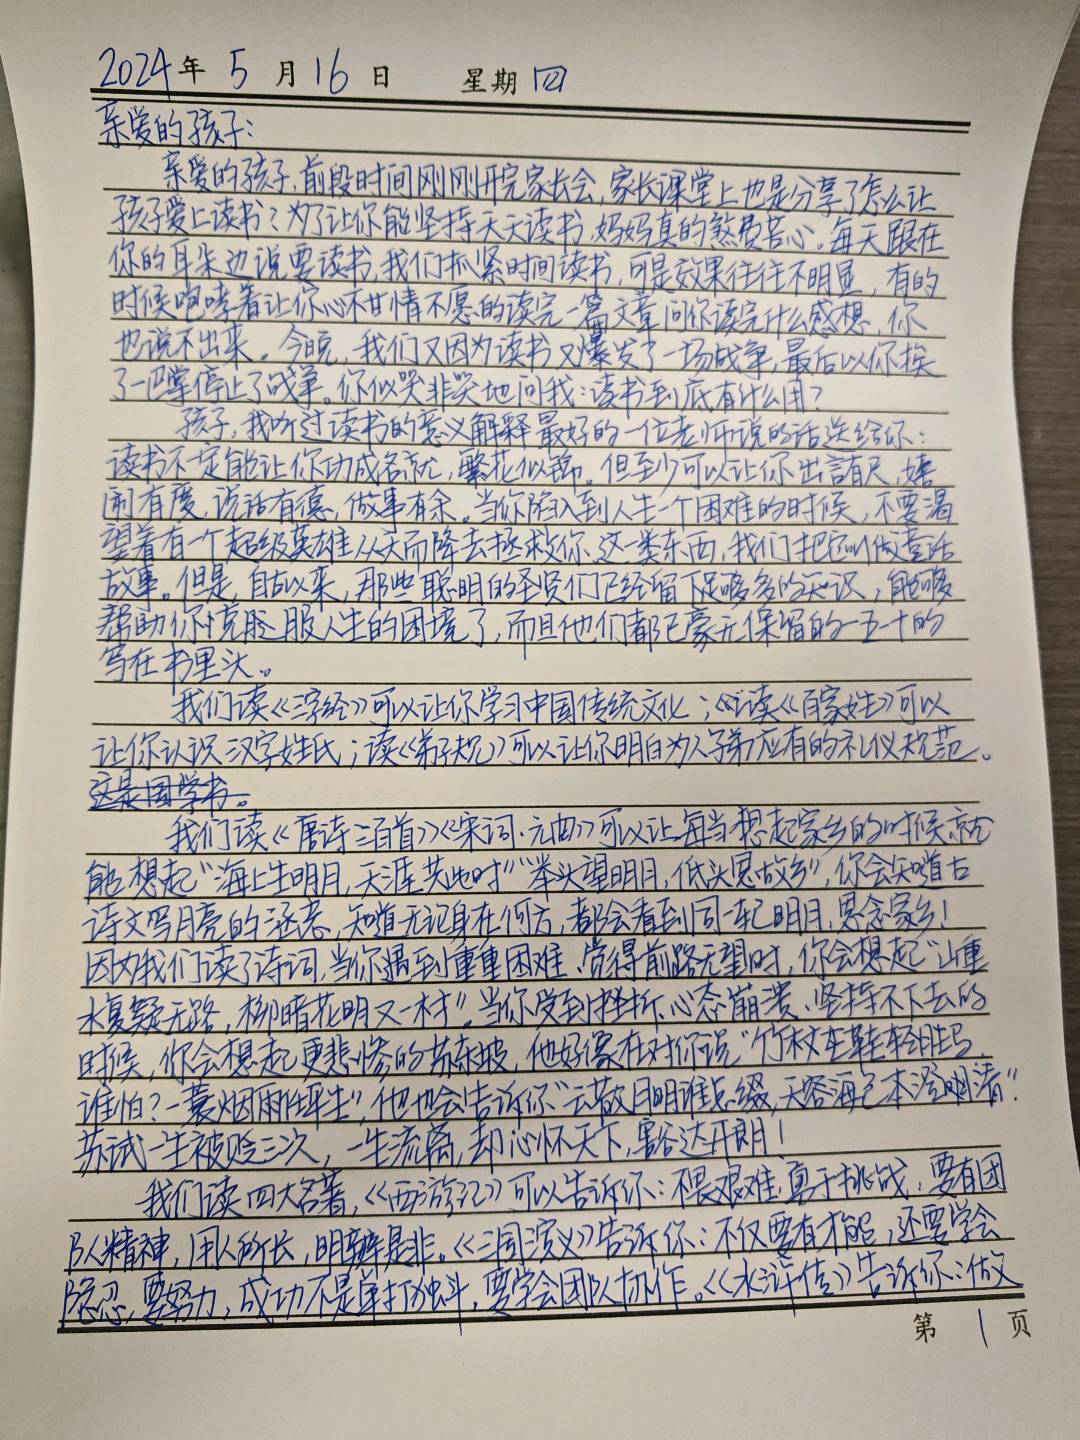 2024年 5 月 16 日 星期 四
亲爱的孩子：
亲爱的孩子，前段时间刚刚开完家长会，家长课堂上也是分享了怎么让
孩子爱上读书？为了让你能坚持天天读书，妈妈真的煞费苦心，每天跟在
你的耳朵边说要读书，我们抓紧时间读书，可是效果往往不明显，有的
时候咆哮着让你心不甘情不愿的读完一篇文章问你读完什么感想，你
也说不出来。今晚，我们又因为读书又爆发了一场战争，最后以你挨
了一巴掌停止了战争。你似哭非哭地问我：读书到底有什么用？
孩子，我听过读书的意义解释最好的一位老师说的话送给你：
读书不一定能让你功成名就，繁花似锦。但至少可以让你出言有尺，嬉
闹有度，说话有德，做事有余。当你陷入到人生一个困难的时候，不要渴
望着有一个超级英雄从天而降去拯救你，这一类东西，我们把它叫做童话
故事。但是，自古以来，那些聪明的圣贤们已经留下足够多的知识，能够
帮助你克服人生的困境了，而且他们都已毫无保留的一五一十的
写在书里头。
我们读《三字经》可以让你学习中国传统文化；读《百家姓》可以
让你认识汉字姓氏；读《弟子规》可以让你明白为人子弟应有的礼仪规范。
这是国学书。
我们读《唐诗三百首》《宋词·元曲》可以让每当想起家乡的时候就
能想起“海上生明月，天涯共此时”“举头望明月，低头思故乡”，你会知道古
诗文写月亮的涵意，知道无论身在何方，都会看到同一轮明月，思念家乡！
因为我们读了诗词，当你遇到重重困难、觉得前路无望时，你会想起“山重
水复疑无路，柳暗花明又一村”。当你受到挫折、心态崩溃、坚持不下去的
时候，你会想起更悲惨的苏东坡，他好像在对你说“竹杖芒鞋轻胜马，
谁怕？一蓑烟雨任平生”，他也会告诉你“云散月明谁点缀，天容海色本澄清”！
苏轼一生被贬三次，一生流离，却心怀天下，豁达开朗！
我们读四大名著，《西游记》可以告诉你：不畏艰难，勇于挑战，要有团
队精神，用人所长，明辨是非。《三国演义》告诉你：不仅要有才能，还要学会
隐忍，要努力，成功不是单打独斗，要学会团队协作。《水浒传》告诉你：做
第 1 页